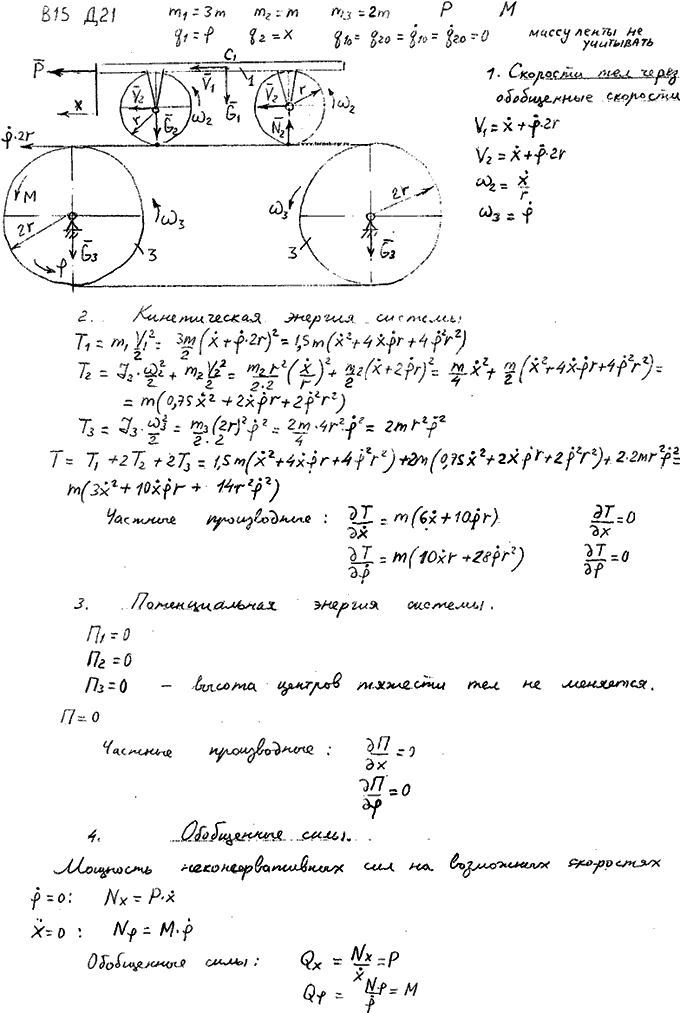 В15 Д21 m₁ = 3m m₂ = m m₃ = 2m P M
q₁ = φ q₂ = x q₁₀ = q₂₀ = q̇₁₀ = q̇₂₀ = 0 массу ленты не учитывать
C₁
P̄ V̄₁ 1
x V̄₂ r Ḡ₂ ω₂ Ḡ₁ V̄₂ N̄₂ r ω₂
φ̇·2r
M 2r φ Ḡ₃ 3 ω₃ ω₃ 3 Ḡ₃ 2r
1. Скорости тел через
обобщенные скорости
V₁ = ẋ + φ̇·2r
V₂ = ẋ + φ̇·2r
ω₂ = ẋ/r
ω₃ = φ̇
2. Кинетическая энергия системы
T₁ = m₁ V₁²/2 = 3m/2 (ẋ + φ̇·2r)² = 1,5m(ẋ² + 4ẋφ̇r + 4φ̇²r²)
T₂ = J₂·ω₂²/2 + m₂ V₂²/2 = m₂r²/2·2 (ẋ/r)² + m₂/2 (ẋ + 2φ̇r)² = m/4 ẋ² + m/2 (ẋ² + 4ẋφ̇r + 4φ̇²r²) =
= m(0,75ẋ² + 2ẋφ̇r + 2φ̇²r²)
T₃ = J₃·ω₃²/2 = m₃(2r)²/2·2 φ̇² = 2m/4 · 4r²·φ̇² = 2mr²φ̇²
T = T₁ + 2T₂ + 2T₃ = 1,5m(ẋ² + 4ẋφ̇r + 4φ̇²r²) + 2m(0,75ẋ² + 2ẋφ̇r + 2φ̇²r²) + 2·2mr²φ̇² =
m(3ẋ² + 10ẋφ̇r + 14r²φ̇²)
Частные производные: ∂T/∂ẋ = m(6ẋ + 10φ̇r) ∂T/∂x = 0
∂T/∂φ̇ = m(10ẋr + 28φ̇r²) ∂T/∂φ = 0
3. Потенциальная энергия системы.
П₁ = 0
П₂ = 0
П₃ = 0 – высота центров тяжести тел не меняется.
П = 0
Частные производные: ∂П/∂x = 0
∂П/∂φ = 0
4. Обобщенные силы.
Мощность неконсервативных сил на возможных скоростях
φ̇ = 0: Nx = P·ẋ
ẋ = 0: Nφ = M·φ̇
Обобщенные силы: Qx = Nx/ẋ = P
Qφ = Nφ/φ̇ = M